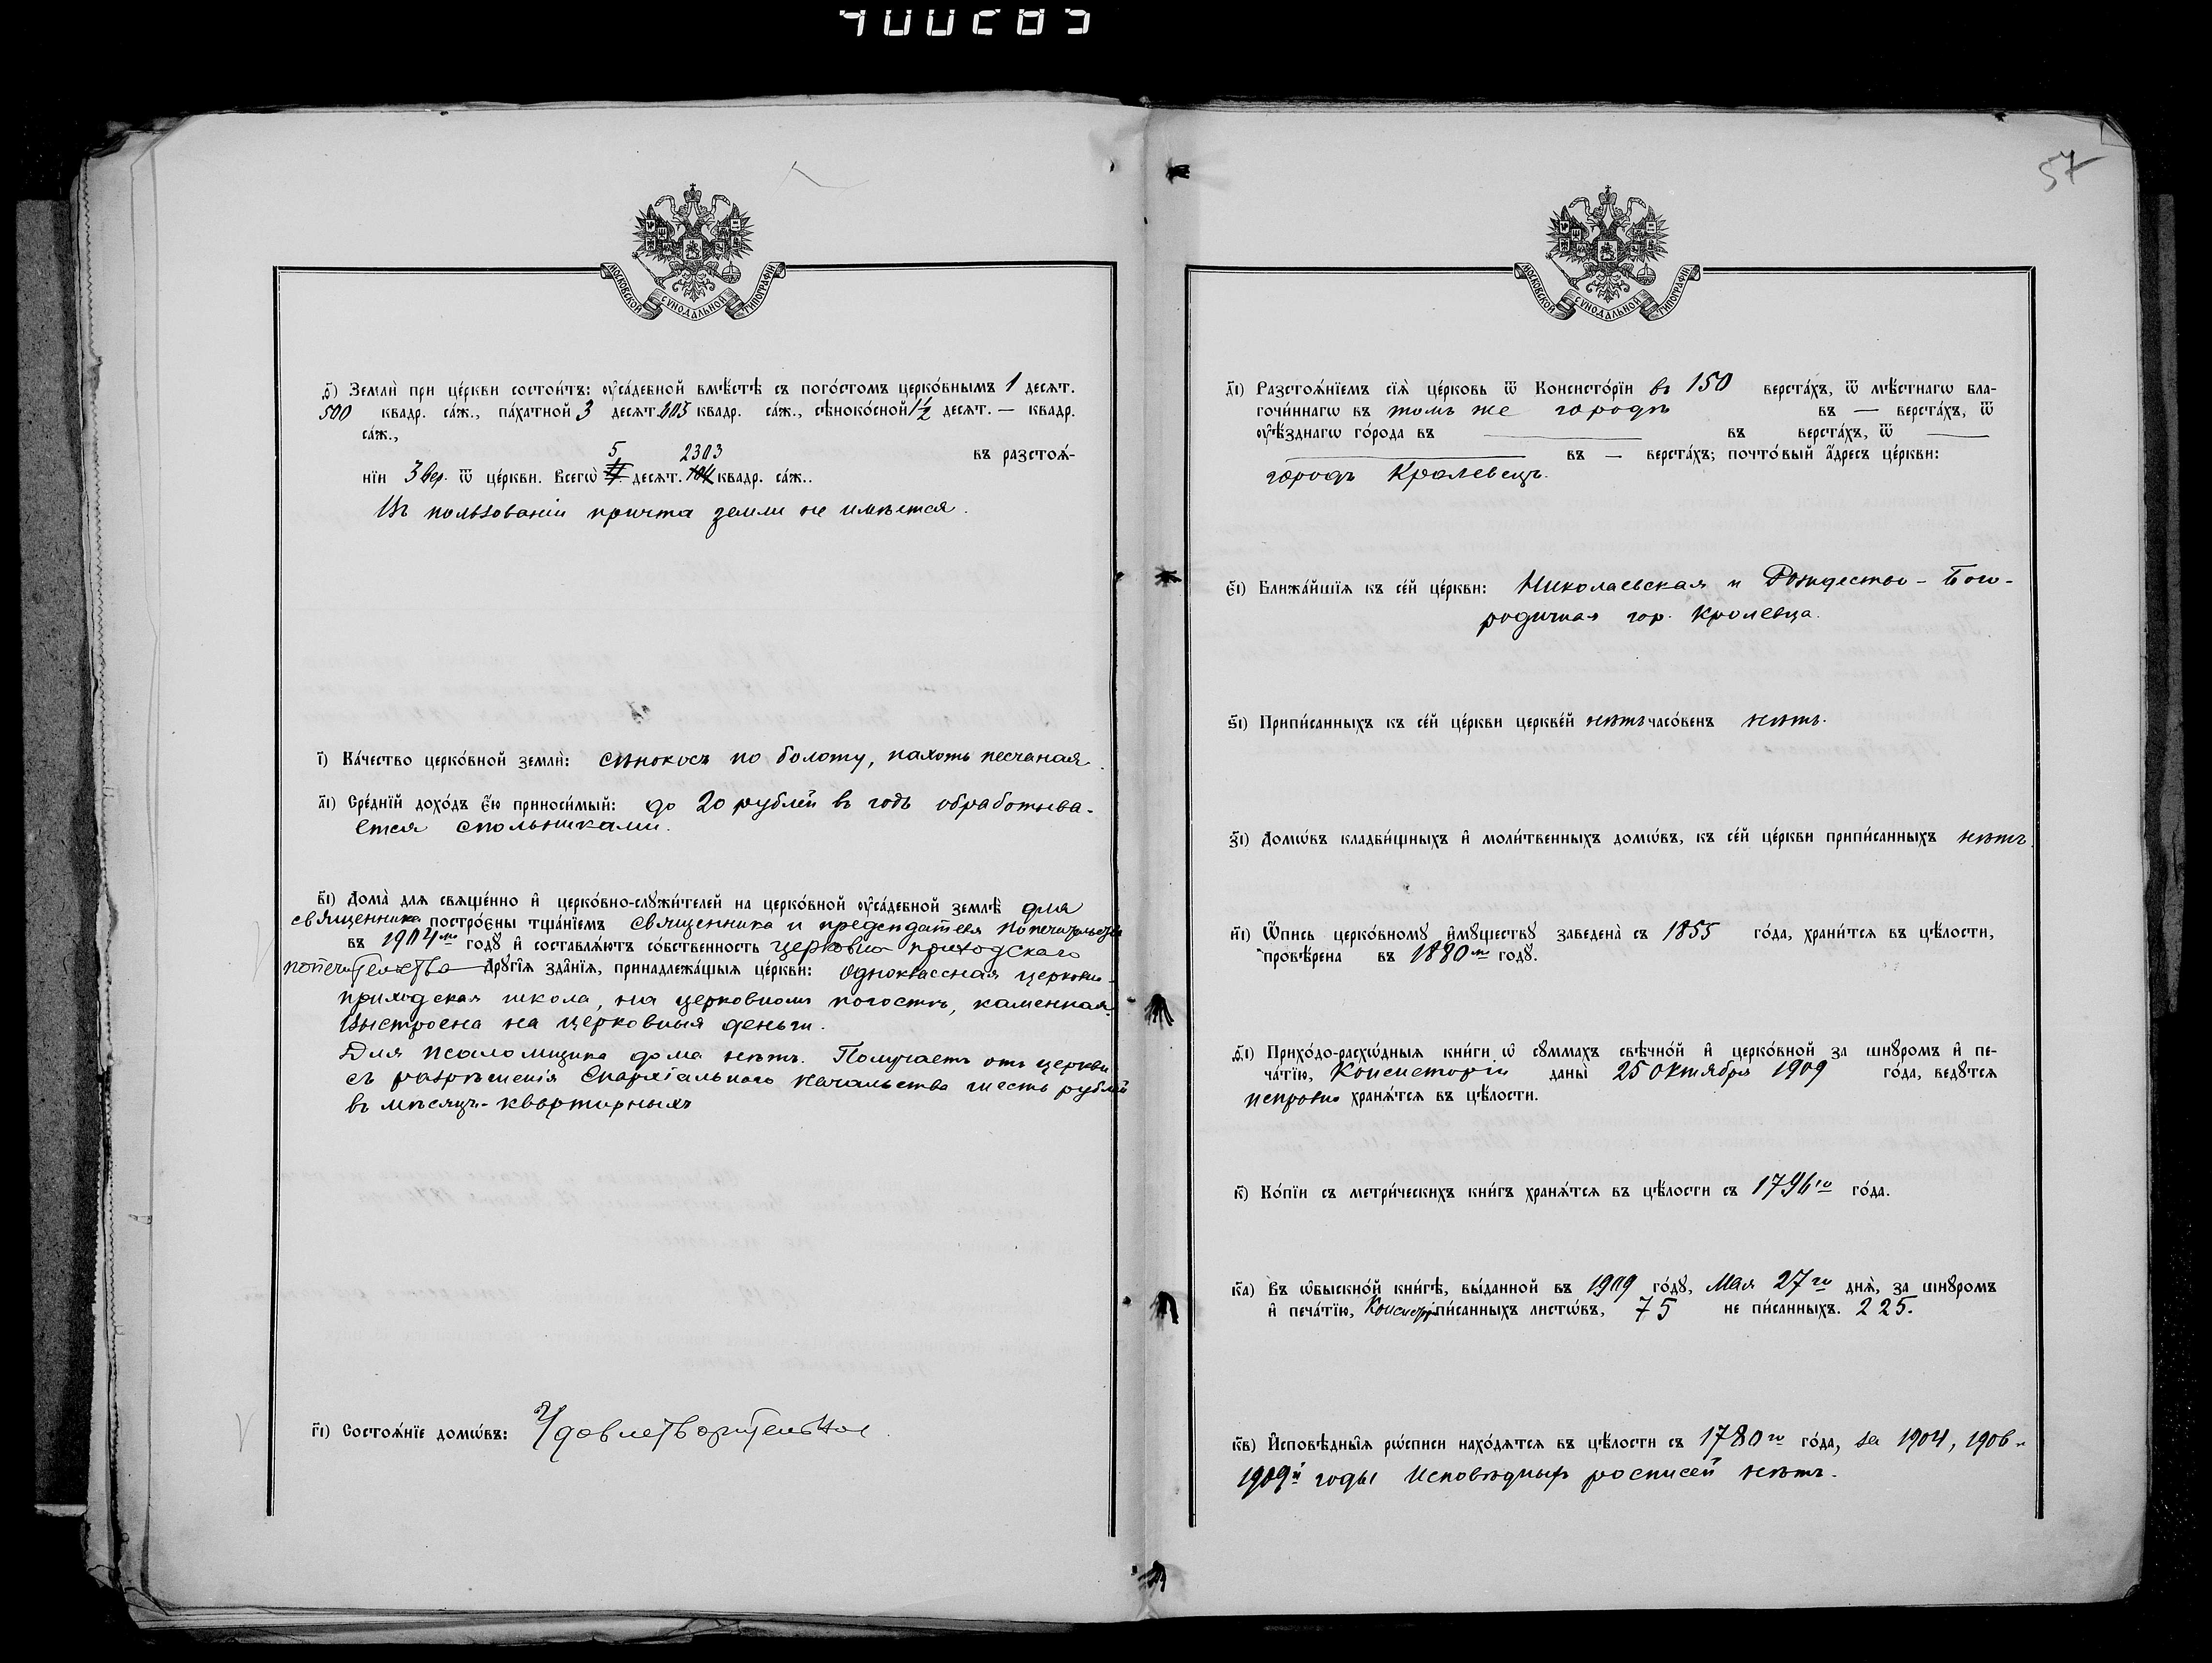 57
МОСКОВСКОЙ СѴНОДАЛЬНОЙ ТИПОГРАФІИ
МОСКОВСКОЙ СѴНОДАЛЬНОЙ ТИПОГРАФІИ
ѳ҃) Землѝ при це́ркви состои́тъ: ᲂу҆са́дебной вмѣ́стѣ съ пого́стомъ церко́внымъ 1 десѧт.
500 квадр. са́ж., па́хатной 3 десѧт. 603 квадр. са́ж., сѣноко́сной 1½ десѧт. — квадр.
са́ж.,
5 2303 въ разстоѧ́-
нїи 3 вер. ѿ це́ркви. Всегѡ̀ десѧт. квадр. са́ж..
Въ пользованіи причта земли не имѣется.
і҃) Ка́чество церко́вной землѝ: сѣнокосъ по болоту, пахоть песчаная.
а҃і) Сре́днїй дохо́дъ є҆́ю приноси́мый: до 20 рублей въ годъ обработыва-
ется спольниками.
в҃і) Дома̀ длѧ свѧще́нно и҆ церко́вно-слꙋжи́телей на церко́вной ᲂу҆са́дебной землѣ̀ для
священника постро́ены тща́нїемъ священника и предсѣдателя попечительства
въ 1904мъ годꙋ̀ и҆ составлѧ́ютъ со́бственность церковно приходскаго
попечительства Дрꙋгі́ѧ зда̑нїѧ, принадлежа́щыѧ це́ркви: одноклассная церковно-
приходская школа, на церковномъ погостѣ, каменная,
выстроена на церковныя деньги.
Для псаломщика дома нѣтъ. Получаетъ отъ церкви
съ разрѣшенія Епархіальнаго начальства шесть рублей
въ мѣсяцъ-квартирныхъ
г҃і) Состоѧ́нїе домѡ́въ: Удовлетворительное.
д҃і) Разстоѧ́нїемъ сїѧ̀ це́рковь ѿ Консисто́рїи въ 150 верста́хъ, ѿ мѣ́стнагѡ бла-
гочи́ннагѡ въ томъ же городѣ въ — верста́хъ, ѿ
ᲂу҆ѣ́зднагѡ го́рода въ — въ верста́хъ, ѿ —
— въ — верста́хъ; почто́вый а҆́дресъ це́ркви:
городъ Кролевецъ.
є҃і) Ближа́йшїѧ къ се́й це́ркви: Николаевская и Рождество-Бого-
родичная гор. Кролевца.
ѕ҃і) Припи́санныхъ къ се́й це́ркви церкве́й нѣтъ часо́венъ нѣтъ.
з҃і) Домѡ́въ кладби́щныхъ и҆ моли́твенныхъ домѡ́въ, къ се́й це́ркви припи́санныхъ нѣтъ.
и҃і) Ѻ҆́пись церко́вномꙋ и҆мꙋ́ществꙋ заведена̀ съ 1855 го́да, храни́тсѧ въ цѣ́лости,
провѣ́рена въ 1880мъ годꙋ̀.
ѳ҃і) Прихо́до-расхѡ́дныѧ кни́ги ѡ҆ сꙋ́ммахъ свѣчно́й и҆ церко́вной за шнꙋро́мъ и҆ пе-
ча́тїю, Консисторіи даны̀ 25 Октября 1909 го́да, ведꙋ́тсѧ
исправно хранѧ́тсѧ въ цѣ́лости.
к҃) Ко́пїи съ метри́ческихъ кни́гъ хранѧ́тсѧ въ цѣ́лости съ 1796го го́да.
к҃а) Въ ѡ҆быскно́й кни́гѣ, вы́данной въ 1909 го́дꙋ, Мая 27го днѧ̀, за шнꙋро́мъ
и҆ печа́тїю, Консисторіи пи́санныхъ листѡ́въ, 75 не пи́санныхъ. 225.
к҃в) И҆сповѣ̑дныѧ рѡ́списи нахо́дѧтсѧ въ цѣ́лости съ 1780го го́да, за 1904, 1906 и
1909й годы Исповѣдныхъ росписей нѣтъ.